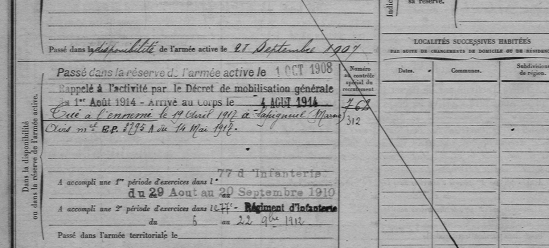 sa réserve.
Passé dans la disponibilité de l'armée active le 25 Septembre 1907
Passé dans la réserve de l'armée active le 1 OCT 1908
Rappelé à l'activité par le Décret de mobilisation générale
du 1er Août 1914 - Arrivé au Corps le 4 AOUT 1914
Tué à l'ennemi le 17 Avril 1917 à Sapigneul (Marne)
Avis mel B.P. 3795 A du 14 Mai 1917.
Numéro
au contrôle
spécial du
recrutement
762
312
Dans la disponibilité
ou dans la réserve de l'armée active.
77 d'Infanterie
A accompli une 1re période d'exercices dans l
du 29 Aout au 20 Septembre 1910
A accompli une 2e période d'exercices dans le 77e Régiment d'Infanterie
du 6 au 22 9bre 1912
Passé dans l'armée territoriale le
LOCALITÉS SUCCESSIVES HABITÉES
PAR SUITE DE CHANGEMENTS DE DOMICILE OU DE RÉSIDEN
Dates.
Communes.
Subdivisions
de région.